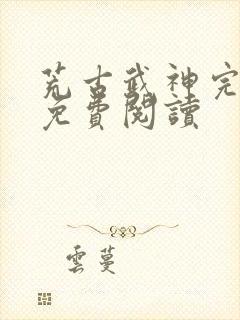 荒古武神完
免費閱讀
雲蔓